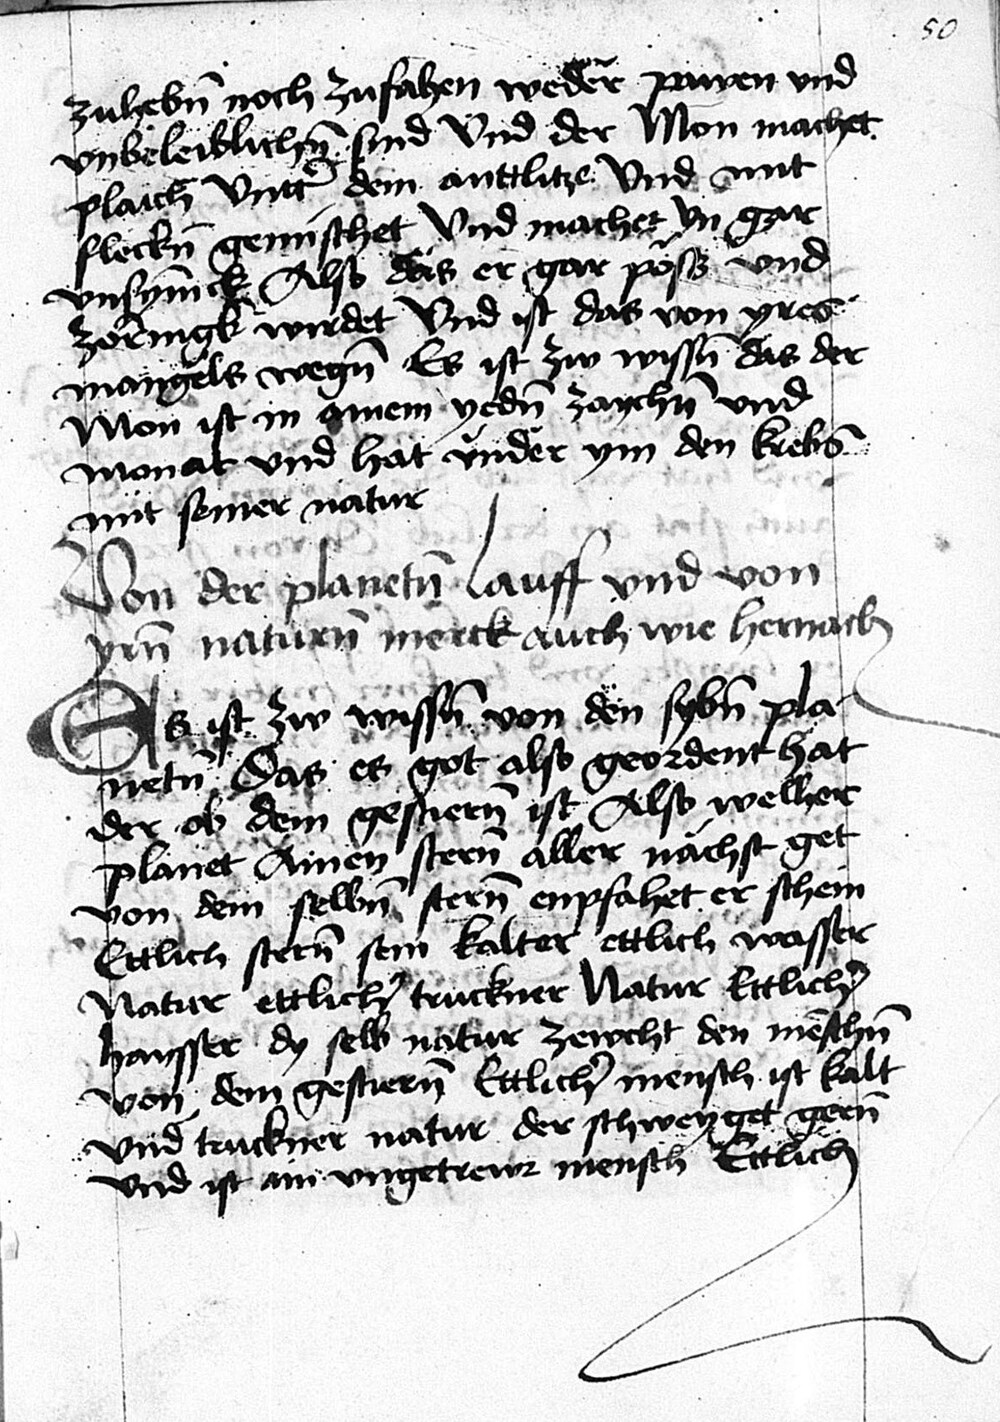 50
zuhebn̄ noch zufahen weder pawen vnd
vnbeleiblichn̄ sind Vnd der Mon machet
plaich Vntt' dem anttlitze Vnd mit
fleckn̄ gemischet Vnd machet yn gar
vnsynnick Also das er gar pöss vnd
zorningk wirdet Vnd ist das von yres
mangels wegn̄ Es ist zw wissn̄ das der
Mon ist in ainem yedn̄ zaychn̄ vnd
monat vnd hat vnder ym den krebs
mit seiner natur
Von der planetn̄ lauff vnd von
yrn̄ naturn̄ merck auch wie hernach
Es ist zw wissn̄ von den sybn̄ pla
netn̄ Das es got also geordent hat
der ob dem gestiern̄ ist Also welher
planet Ainen stern̄ aller nächst get
von dem selbn̄ stern̄ enpfahet er schein
Ettlich stern̄ sein kalter ettlich wasser
Natur ettlich' truckner Natur Ettlich'
haysser dy selb natur zewcht den menschn̄
von dem gestiern̄ Ettlich' mensch ist kalt
vnd truckner natur der schweyget gern̄
vnd ist ain vngetrewr mensch Ettlich